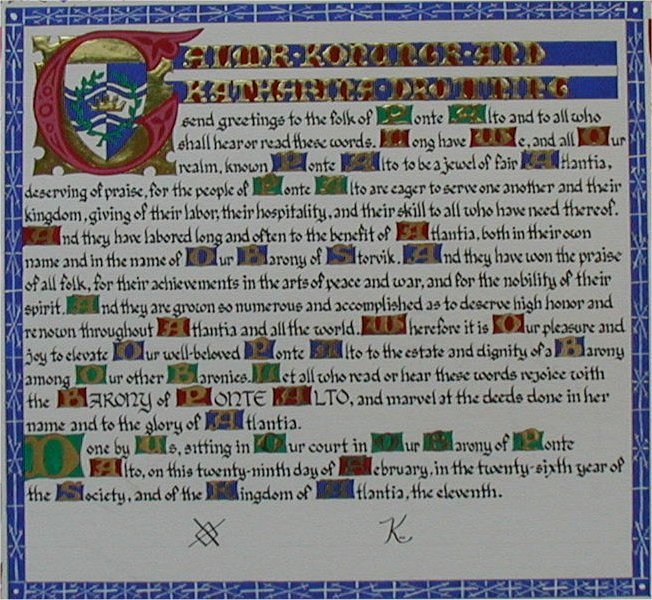 GALMR · KONUNGR · AND
KATHARINA · DROTTNING
send greetings to the folk of Ponte Alto and to all who
shall hear or read these words. Long have We, and all Our
realm, known Ponte Alto to be a jewel of fair Atlantia,
deserving of praise, for the people of Ponte Alto are eager to serve one another and their
kingdom, giving of their labor, their hospitality, and their skill to all who have need thereof.
And they have labored long and often to the benefit of Atlantia, both in their own
name and in the name of Our Barony of Storvik. And they have won the praise
of all folk, for their achievements in the arts of peace and war, and for the nobility of their
spirit. And they are grown so numerous and accomplished as to deserve high honor and
renown throughout Atlantia and all the world. Wherefore it is Our pleasure and
joy to elevate Our well-beloved Ponte Alto to the estate and dignity of a Barony
among Our other Baronies. Let all who read or hear these words rejoice with
the BARONY of PONTE ALTO, and marvel at the deeds done in her
name and to the glory of Atlantia.
Done by Us, sitting in Our court in Our Barony of Ponte
Alto, on this twenty-ninth day of February, in the twenty-sixth year of
the Society, and of the Kingdom of Atlantia, the eleventh.
K